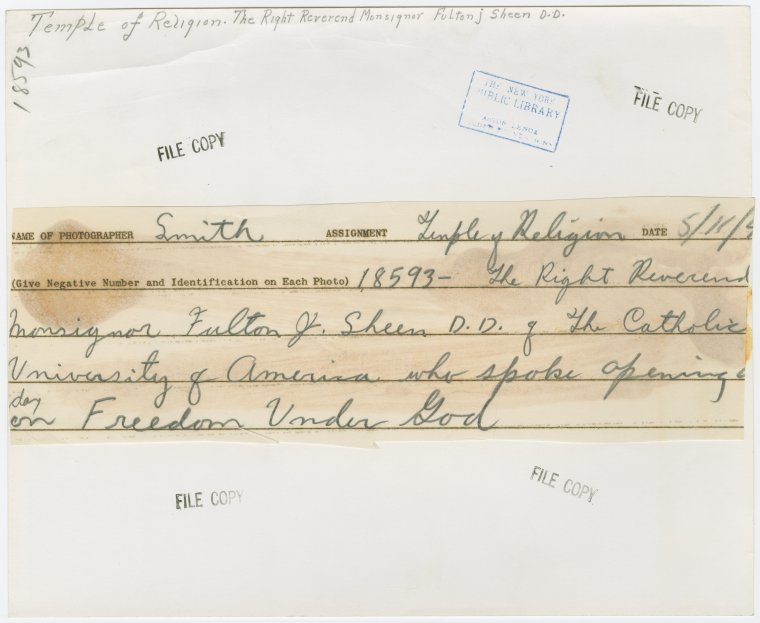 Temple of Religion. The Right Reverend Monsignor Fulton J Sheen D.D.
18593
THE NEW YORK
PUBLIC LIBRARY
ASTOR LENOX
FILE COPY
FILE COPY
NAME OF PHOTOGRAPHER Smith ASSIGNMENT Temple of Religion DATE 5/11/
(Give Negative Number and Identification on Each Photo) 18593- The Right Reverend
Monsignor Fulton J. Sheen D.D. of The Catholic
University of America who spoke opening
day
on Freedom Under God
FILE COPY
FILE COPY